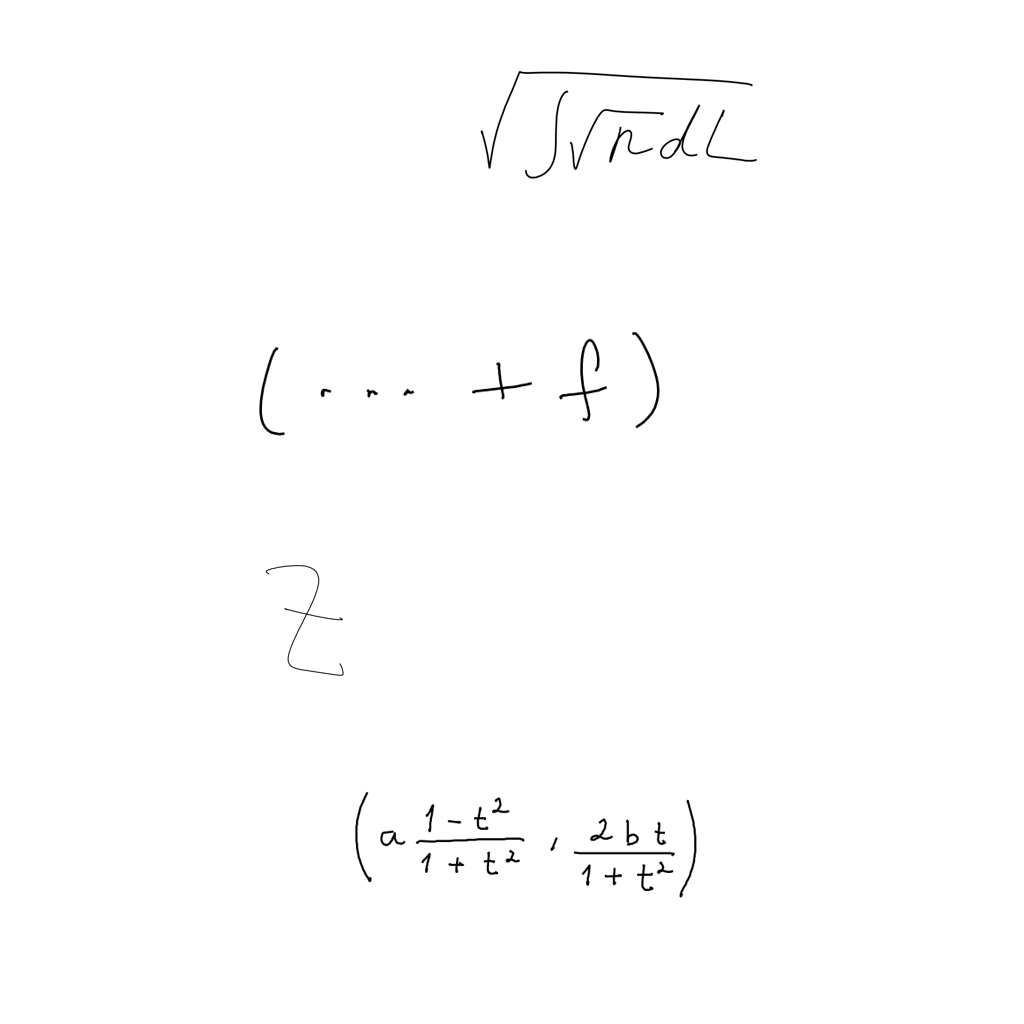 \sqrt{\int \sqrt{n} dL}
(... + f)
Z
\left( a \frac{1-t^2}{1+t^2} , \frac{2bt}{1+t^2} \right)